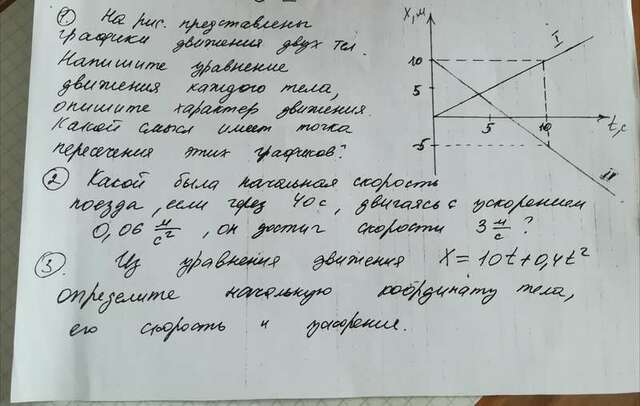 ① На рис. представлены
графики движения двух тел.
Напишите уравнение
движения каждого тела,
опишите характер движения.
Какой смысл имеет точка
пересечения этих графиков?
X, м
I
10
5
5
10
t, c
-5
II
② Какой была начальная скорость
поезда, если через 40 с, двигаясь с ускорением
0,06 м/с², он достиг скорости 3 м/с ?
③. Из уравнения движения X = 10t + 0,4t²
определите начальную координату тела,
его скорость и ускорение.